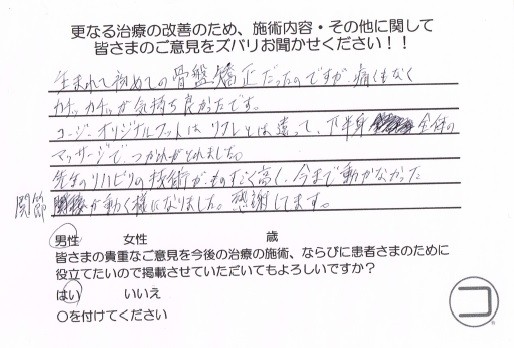 更なる治療の改善のため、施術内容・その他に関して
皆さまのご意見をズバリお聞かせください！！
生まれて初めての骨盤矯正だったのですが痛くもなく
カチッカチッが気持ち良かったです。
コージーオリジナルフットはリフレとは違って、下半身全体の
マッサージでつかれがとれました。
先生のリハビリの技術がものすごく高く、今まで動かなかった
関節が動く様になりました。感謝してます。
男性 女性 歳
皆さまの貴重なご意見を今後の治療の施術、ならびに患者さまのために
役立てたいので掲載させていただいてもよろしいですか？
はい いいえ
○を付けてください
コ